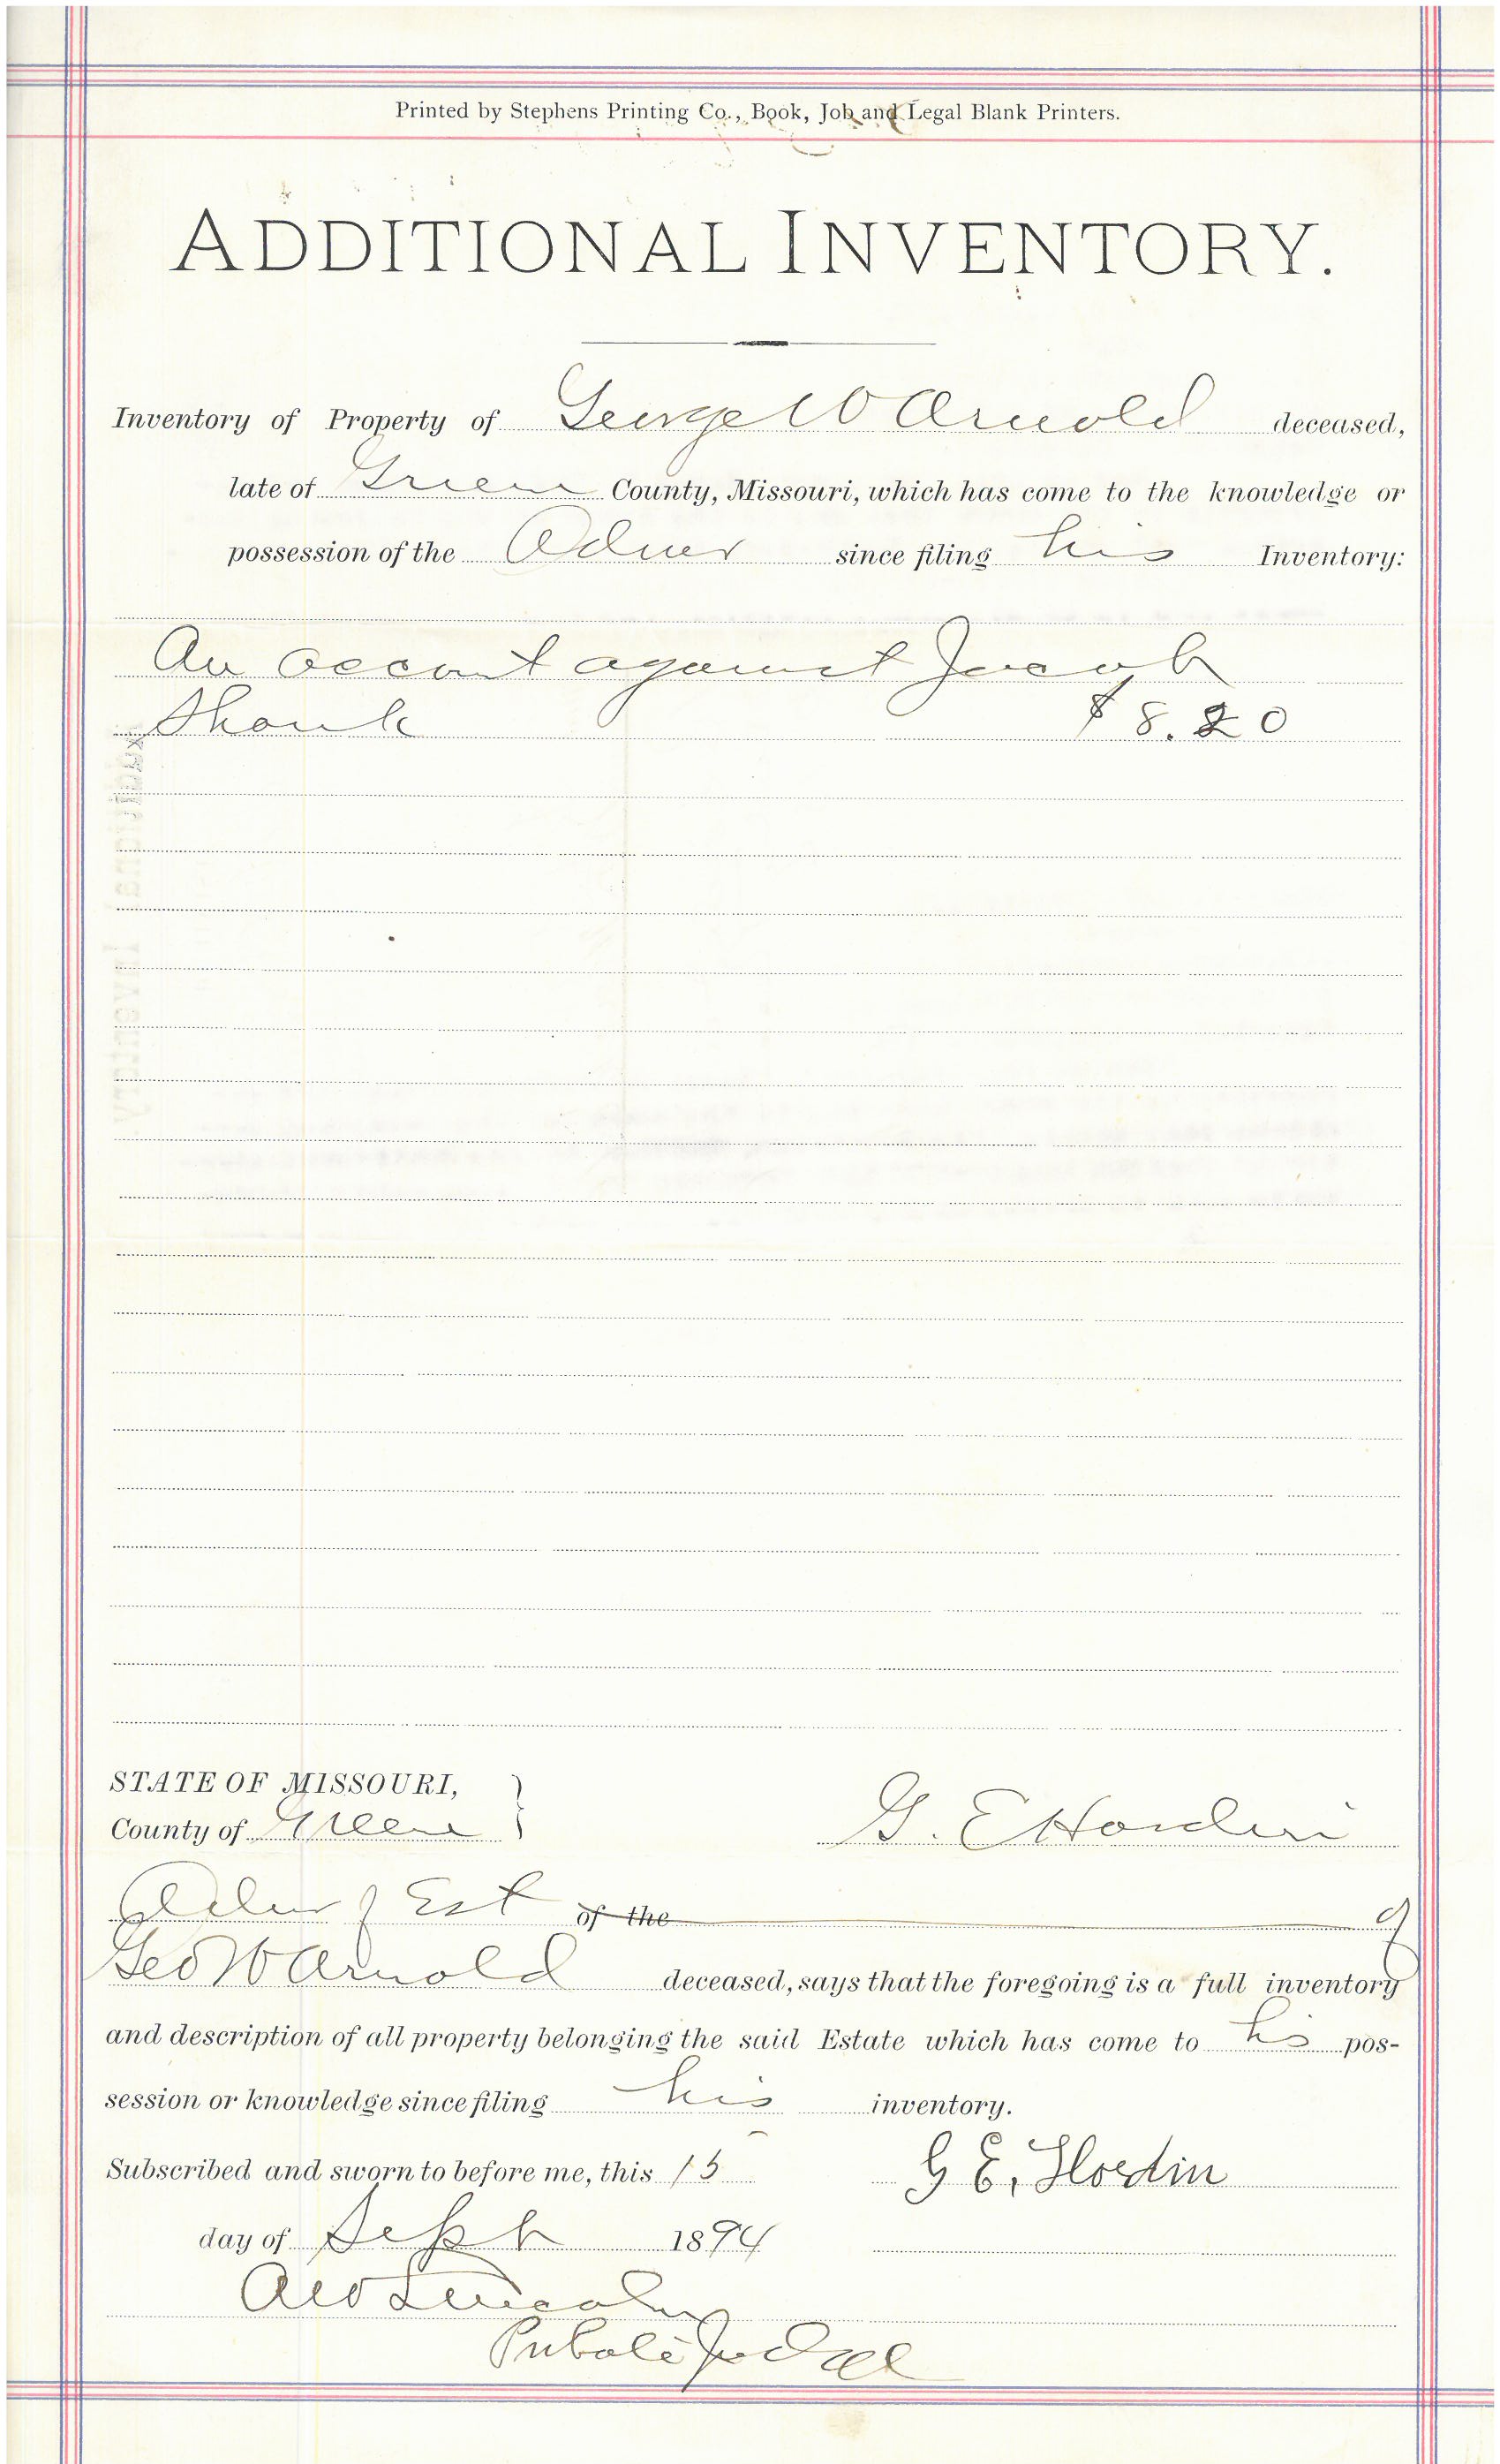 Printed by Stephens Printing Co., Book, Job and Legal Blank Printers.
ADDITIONAL INVENTORY.
Inventory of Property of George W Arnold deceased,
late of Green County, Missouri, which has come to the knowledge or
possession of the Admr since filing his Inventory:
An accont against Jacob
Shank $8.20
STATE OF MISSOURI,
County of Green } G. E Hordin
Admr of Est of the of
Geo W Arnold deceased, says that the foregoing is a full inventory
and description of all property belonging the said Estate which has come to his pos-
session or knowledge since filing his inventory.
Subscribed and sworn to before me, this 15 G E, Hordin
day of Sept 1894
Lincoln
Probate Judge